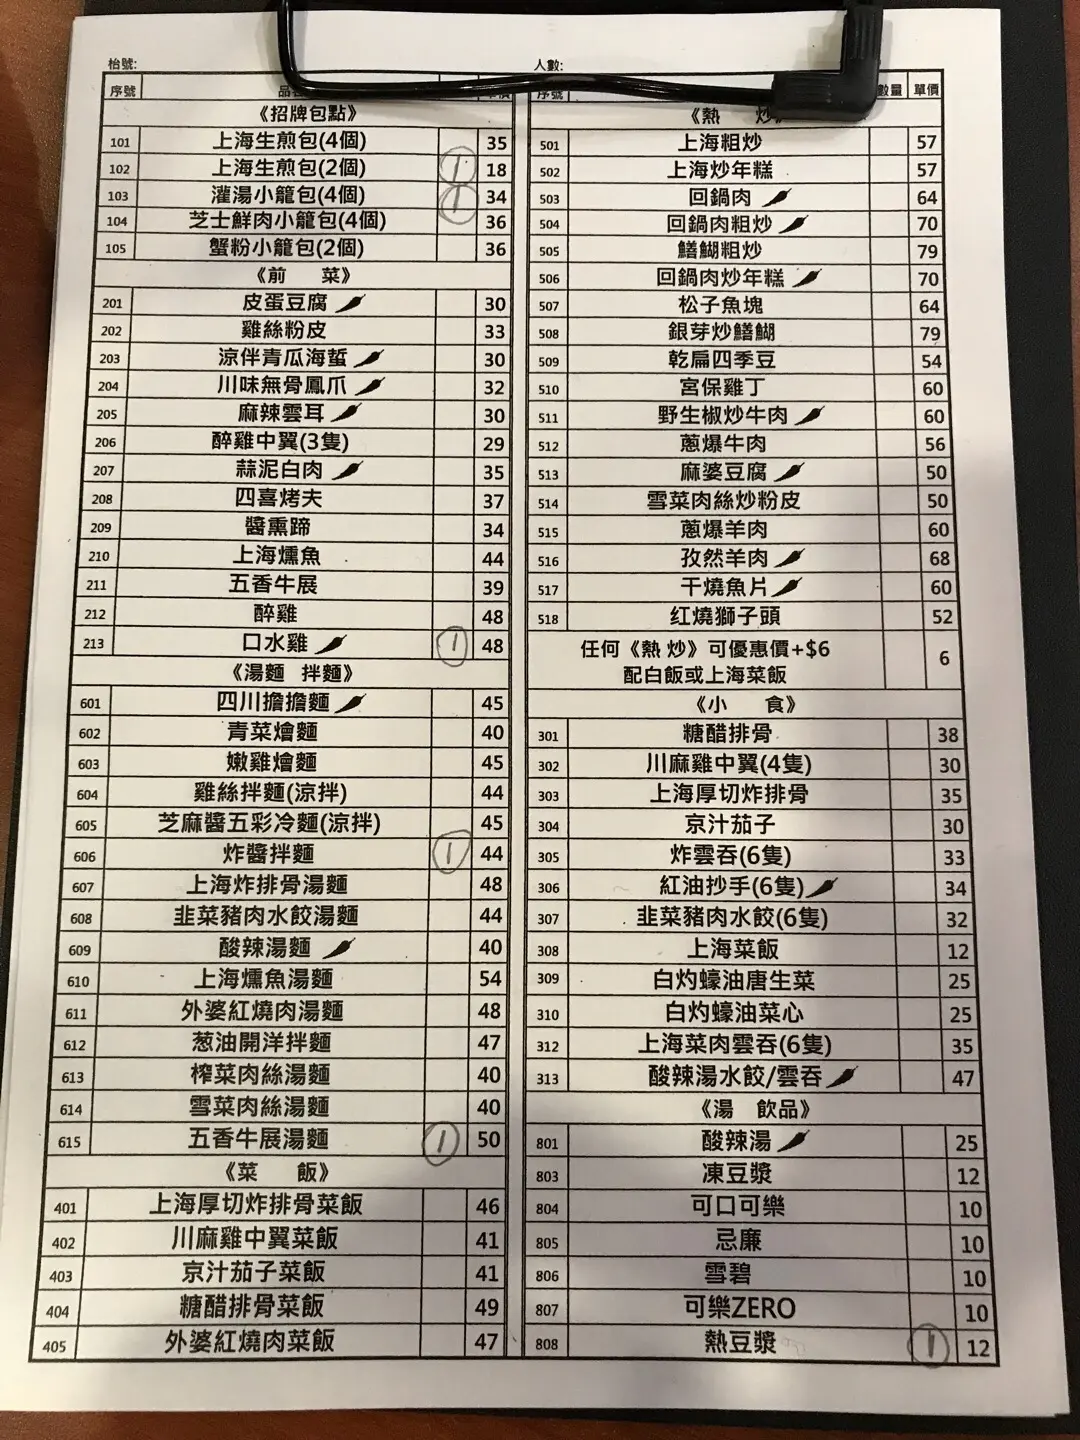 枱號:
序號
《招牌包點》
101 上海生煎包(4個) 35
102 上海生煎包(2個) 1 18
103 灌湯小籠包(4個) 1 34
104 芝士鮮肉小籠包(4個) 36
105 蟹粉小籠包(2個) 36
《前 菜》
201 皮蛋豆腐 30
202 雞絲粉皮 33
203 涼伴青瓜海蜇 30
204 川味無骨鳳爪 32
205 麻辣雲耳 30
206 醉雞中翼(3隻) 29
207 蒜泥白肉 35
208 四喜烤夫 37
209 醬熏蹄 34
210 上海燻魚 44
211 五香牛展 39
212 醉雞 48
213 口水雞 1 48
《湯麵 拌麵》
601 四川擔擔麵 45
602 青菜燴麵 40
603 嫩雞燴麵 45
604 雞絲拌麵(涼拌) 44
605 芝麻醬五彩冷麵(涼拌) 45
606 炸醬拌麵 1 44
607 上海炸排骨湯麵 48
608 韭菜豬肉水餃湯麵 44
609 酸辣湯麵 40
610 上海燻魚湯麵 54
611 外婆紅燒肉湯麵 48
612 葱油開洋拌麵 47
613 榨菜肉絲湯麵 40
614 雪菜肉絲湯麵 40
615 五香牛展湯麵 1 50
《菜 飯》
401 上海厚切炸排骨菜飯 46
402 川麻雞中翼菜飯 41
403 京汁茄子菜飯 41
404 糖醋排骨菜飯 49
405 外婆紅燒肉菜飯 47
人數:
數量 單價
《熱 炒》
501 上海粗炒 57
502 上海炒年糕 57
503 回鍋肉 64
504 回鍋肉粗炒 70
505 鱔餬粗炒 79
506 回鍋肉炒年糕 70
507 松子魚塊 64
508 銀芽炒鱔餬 79
509 乾扁四季豆 54
510 宮保雞丁 60
511 野生椒炒牛肉 60
512 蔥爆牛肉 56
513 麻婆豆腐 50
514 雪菜肉絲炒粉皮 50
515 蔥爆羊肉 60
516 孜然羊肉 68
517 干燒魚片 60
518 红燒獅子頭 52
任何《熱 炒》可優惠價+$6
配白飯或上海菜飯 6
《小 食》
301 糖醋排骨 38
302 川麻雞中翼(4隻) 30
303 上海厚切炸排骨 35
304 京汁茄子 30
305 炸雲吞(6隻) 33
306 紅油抄手(6隻) 34
307 韭菜豬肉水餃(6隻) 32
308 上海菜飯 12
309 白灼蠔油唐生菜 25
310 白灼蠔油菜心 25
312 上海菜肉雲吞(6隻) 35
313 酸辣湯水餃/雲吞 47
《湯 飲品》
801 酸辣湯 25
803 凍豆漿 12
804 可口可樂 10
805 忌廉 10
806 雪碧 10
807 可樂ZERO 10
808 熱豆漿 1 12